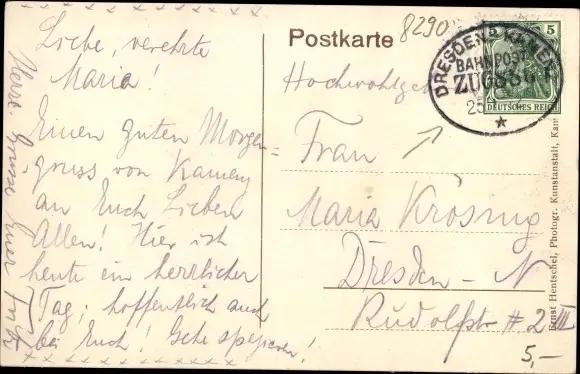 Liebe, verehrte
Maria!
Einen guten Morgen=
gruss von Kamenz
an Euch Lieben
Allen! Hier ist
heute ein herrlicher
Tag; hoffentlich auch
bei Euch! Gehe spazieren!
Herzl. Grüsse Euer Fritz
Postkarte
8290
DRESDEN KAMENZ
BAHNPOST
ZUG
5 5
DEUTSCHES REICH
Frau
Maria Krösing
Dresden - N
Rudolfstr # 2 III
5,-
Ernst Hentschel, Photogr. Kunstanstalt, Kam